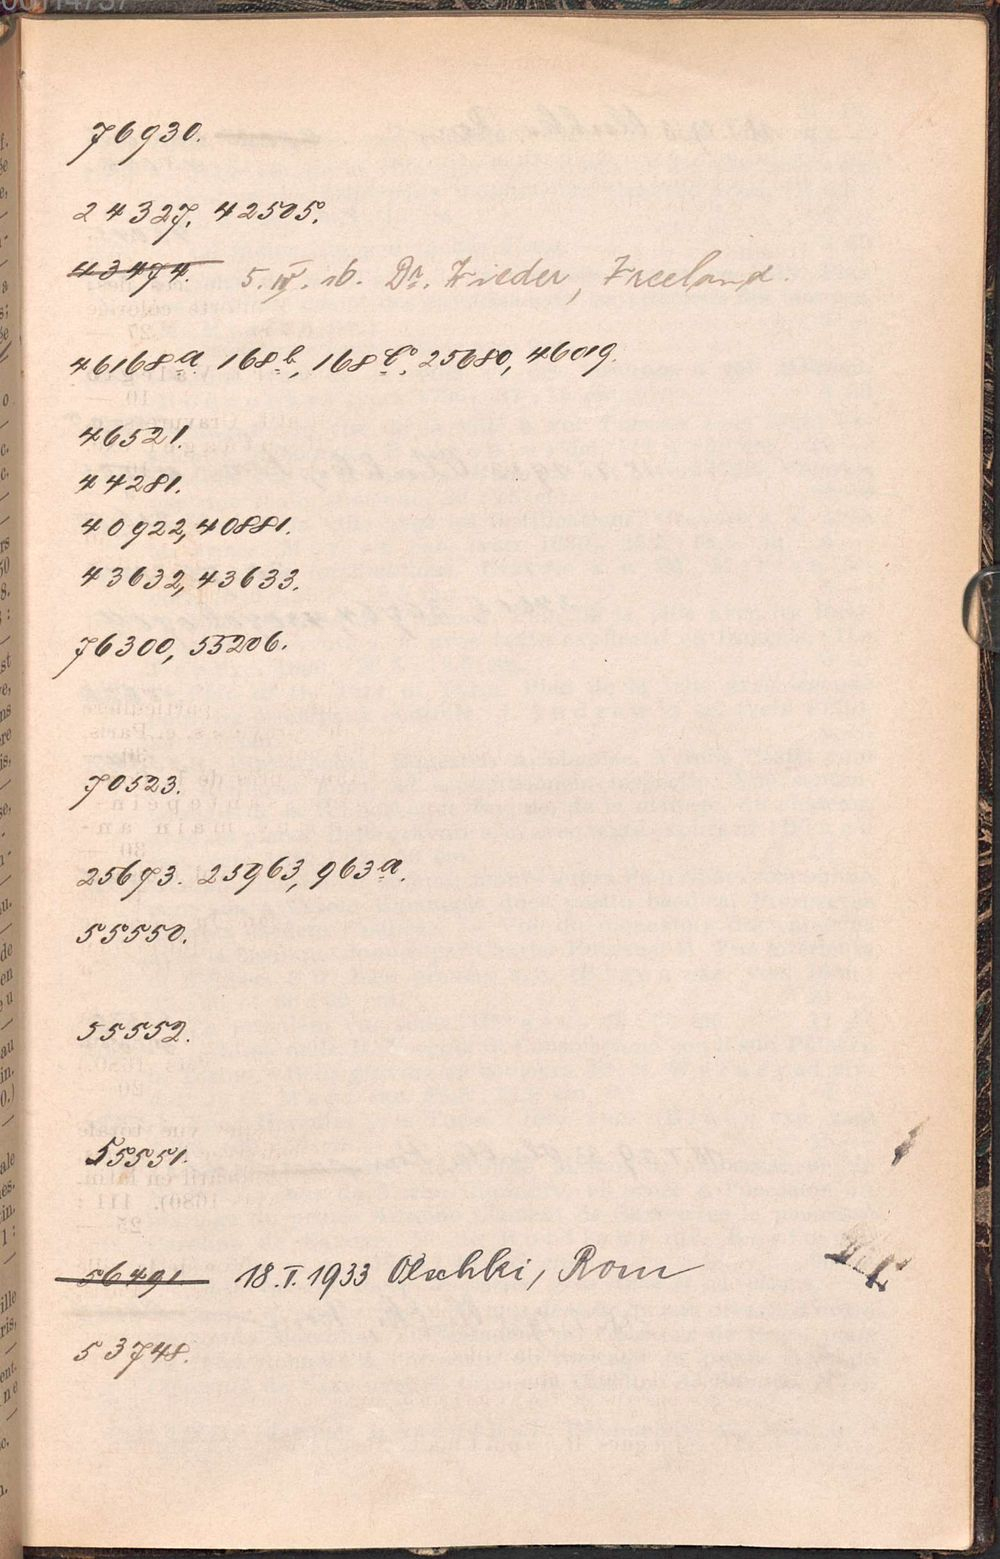 76930.
24327, 42505.
43474. 5. IV. 16. Dr. Wieder, Vreeland.
46168a 168b, 168c, 25680, 46019.
46521.
44281.
40922, 40881.
43632, 43633.
76300, 55206.
70523.
25673. 25963, 963a.
55550.
55552.
55551.
56491 18. I. 1933 Olschki, Rom
53748.